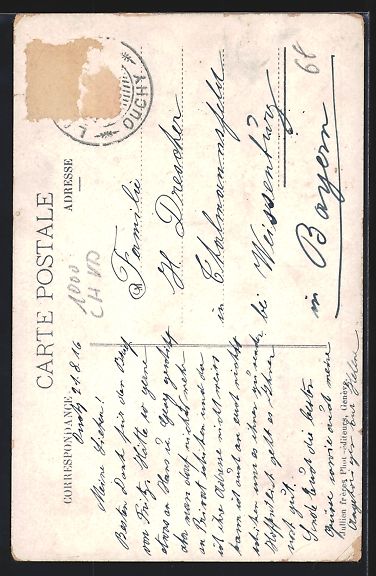 CARTE POSTALE
CORRESPONDANCE
ADRESSE
OUCHY
68
1000
CH VD
Ouchy 21.8.16
Meine Lieben!
Besten Dank für den Brief
von Fritz. Hätte so gerne
etwas an Hans u. Georg geschickt
da man doch nichts mehr
an Privat schicken und da
ich ihre Adresse nicht weiss
kann ich auch an euch nichts
schicken um es ihnen zu
Hoffentlich geht es Ihnen
noch gut.
Sende Euch die besten
Grüsse sowie auch meine
Angehörigen eure Helene
Familie
H. Drescher
in Thalmannsfeld
bei Weissenburg
in Bayern
Jullien frères Phot.-éditeurs, Genève.